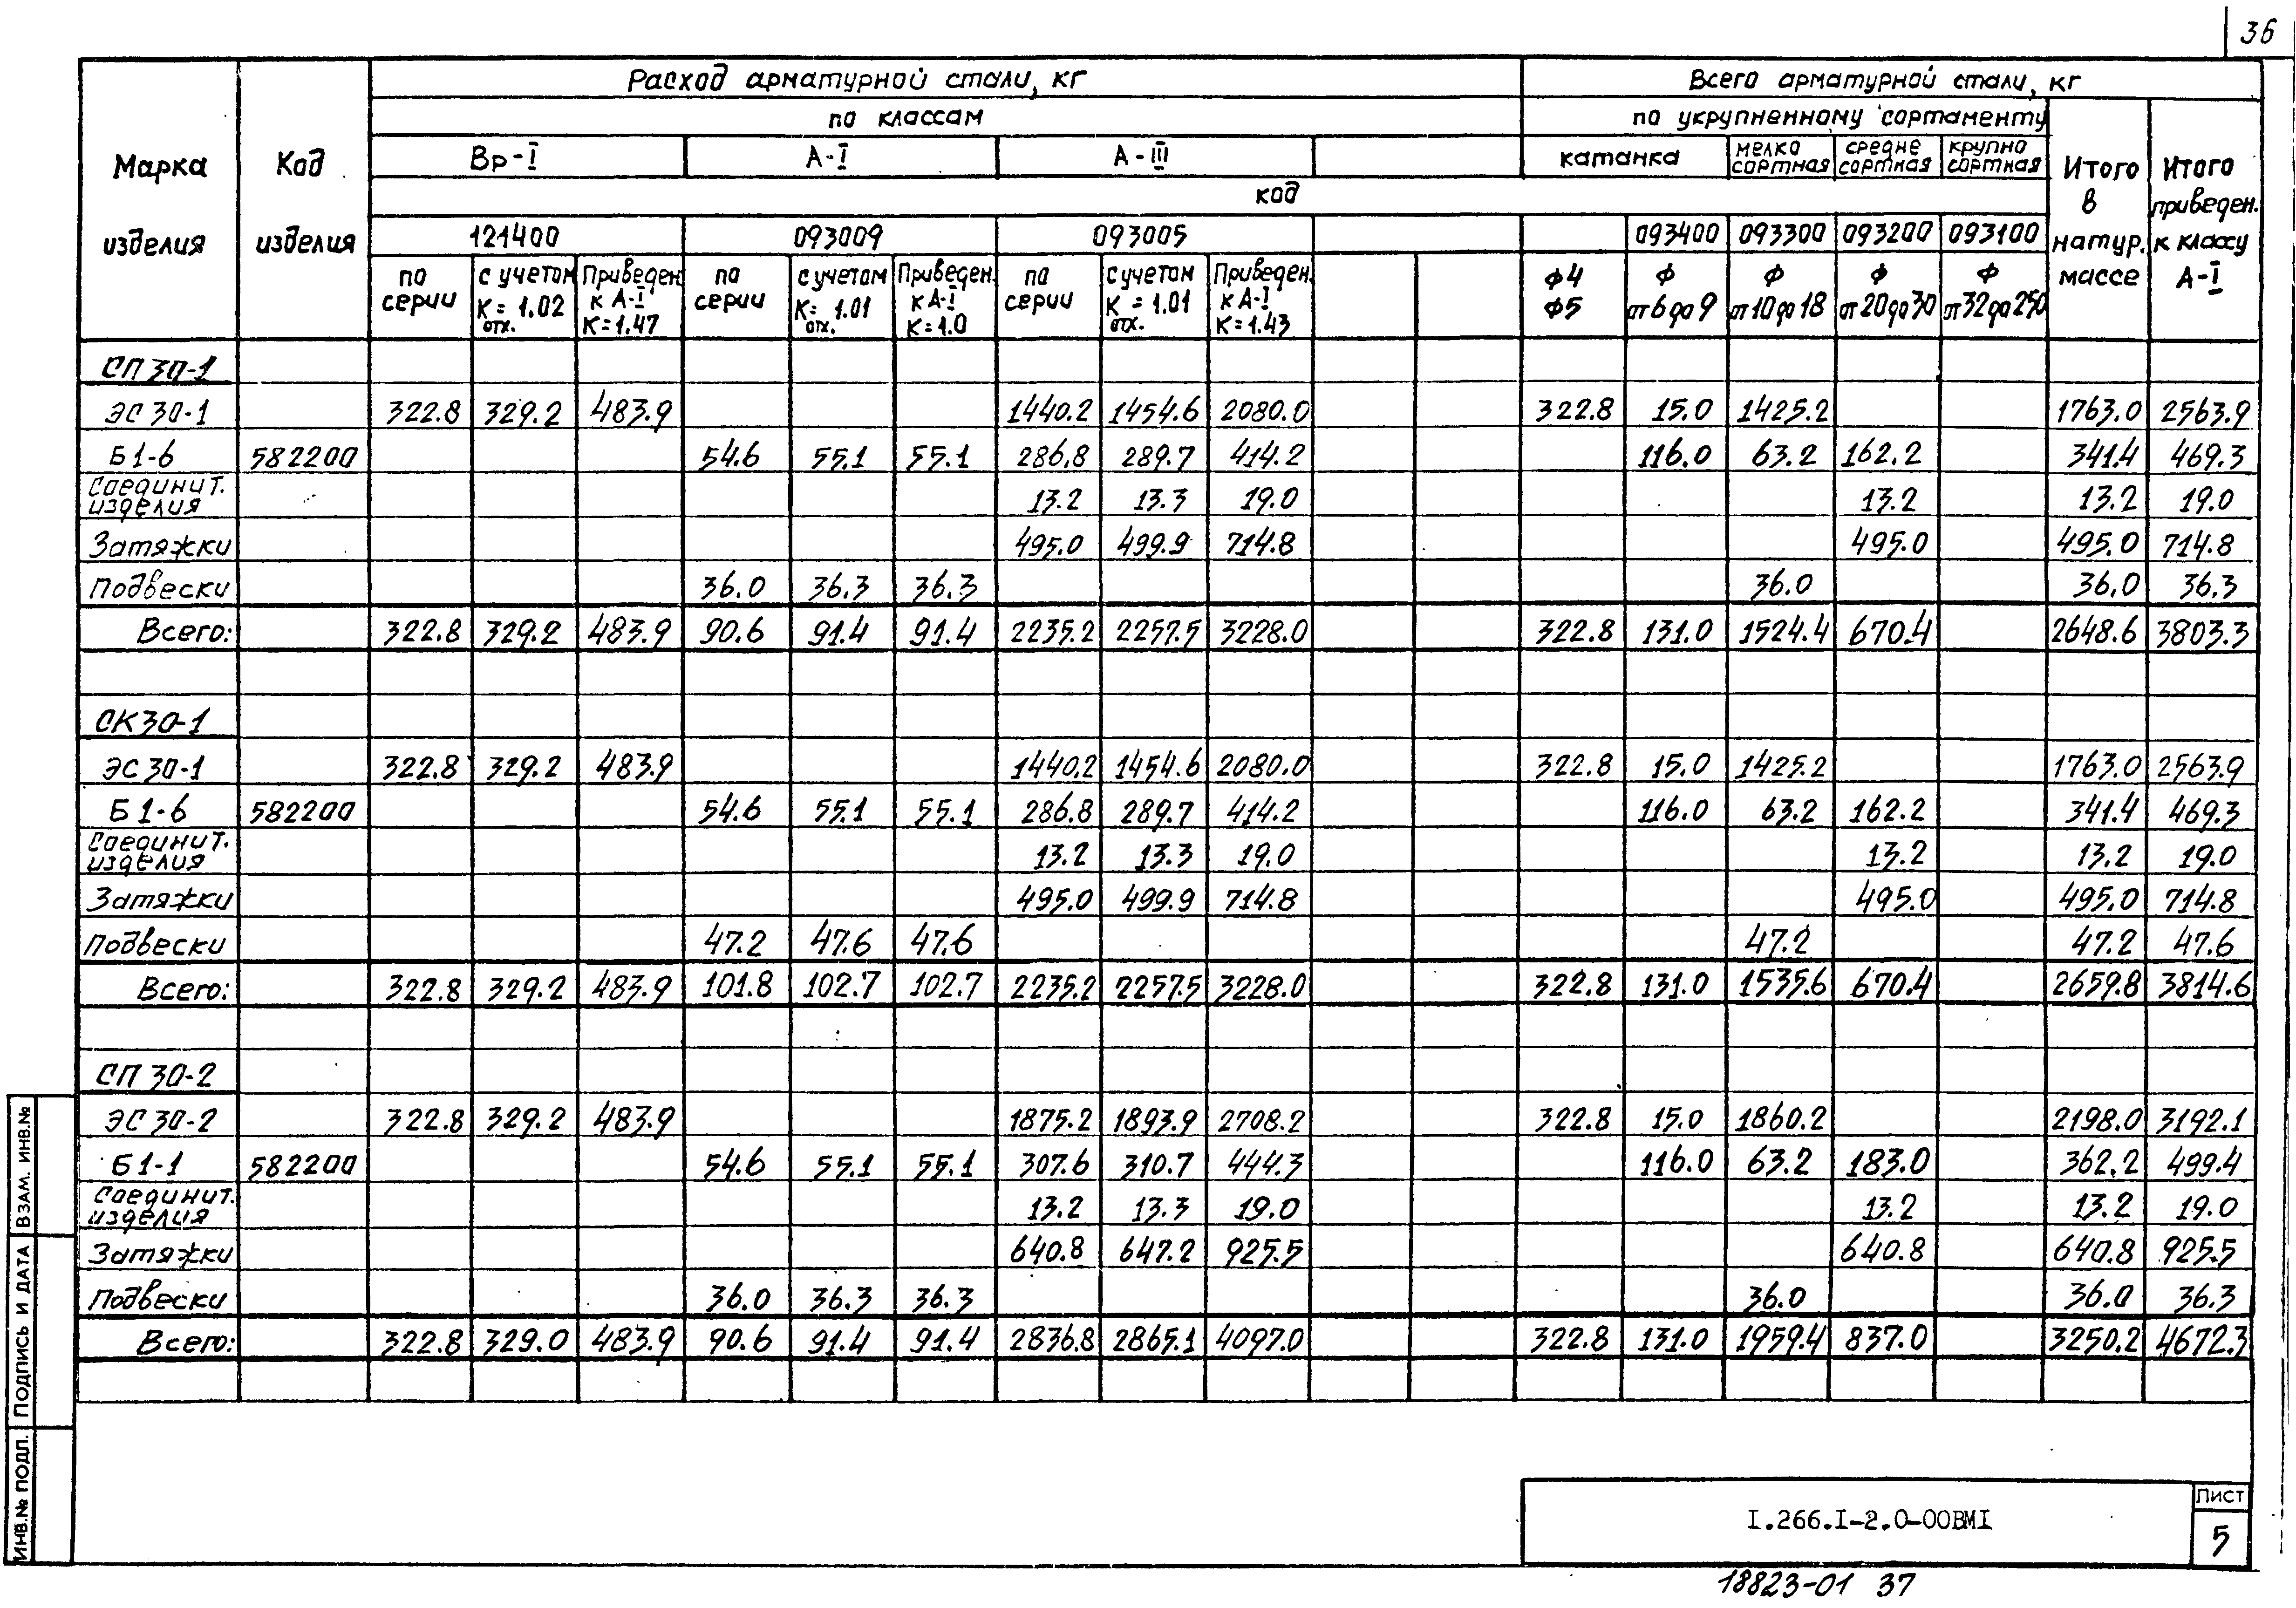 36
Расход арматурной стали, кг Всего арматурной стали, кг
по классам по укрупненному сортаменту
Марка изделия Код изделия Вр-I А-I А-III катанка мелко сортная средне сортная крупно сортная Итого в натур. массе Итого приведен. к классу А-I
код
121400 093009 093005 093400 093300 093200 093100
по серии с учетом Котх.=1.02 Приведен. к А-I К=1.47 по серии с учетом Котх.=1.01 Приведен. к А-I К=1.0 по серии с учетом Котх.=1.01 Приведен. к А-I К=1.43 ф4 ф5 ф от 6 до 9 ф от 10 до 18 ф от 20 до 30 ф от 32 до 250
СП 30-1
ЭС 30-1 322.8 329.2 483.9 1440.2 1454.6 2080.0 322.8 15.0 1425.2 1763.0 2563.9
Б1-6 582200 54.6 55.1 55.1 286.8 289.7 414.2 116.0 63.2 162.2 341.4 469.3
Соединит. изделия 13.2 13.3 19.0 13.2 13.2 19.0
Затяжки 495.0 499.9 714.8 495.0 495.0 714.8
Подвески 36.0 36.3 36.3 36.0 36.0 36.3
Всего: 322.8 329.2 483.9 90.6 91.4 91.4 2235.2 2257.5 3228.0 322.8 131.0 1524.4 670.4 2648.6 3803.3
СК 30-1
ЭС 30-1 322.8 329.2 483.9 1440.2 1454.6 2080.0 322.8 15.0 1425.2 1763.0 2563.9
Б1-6 582200 54.6 55.1 55.1 286.8 289.7 414.2 116.0 63.2 162.2 341.4 469.3
Соединит. изделия 13.2 13.3 19.0 13.2 13.2 19.0
Затяжки 495.0 499.9 714.8 495.0 495.0 714.8
Подвески 47.2 47.6 47.6 47.2 47.2 47.6
Всего: 322.8 329.2 483.9 101.8 102.7 102.7 2235.2 2257.5 3228.0 322.8 131.0 1535.6 670.4 2659.8 3814.6
СП 30-2
ЭС 30-2 322.8 329.2 483.9 1875.2 1893.9 2708.2 322.8 15.0 1860.2 2198.0 3192.1
Б1-1 582200 54.6 55.1 55.1 307.6 310.7 444.3 116.0 63.2 183.0 362.2 499.4
Соединит. изделия 13.2 13.3 19.0 13.2 13.2 19.0
Затяжки 640.8 647.2 925.5 640.8 640.8 925.5
Подвески 36.0 36.3 36.3 36.0 36.0 36.3
Всего: 322.8 329.0 483.9 90.6 91.4 91.4 2836.8 2865.1 4097.0 322.8 131.0 1959.4 837.0 3250.2 4672.3
ВЗАМ. ИНВ.№
ПОДПИСЬ И ДАТА
ИНВ.№ ПОДЛ.
I.266.I-2.0-00ВМI
Лист
5
18823-01 37